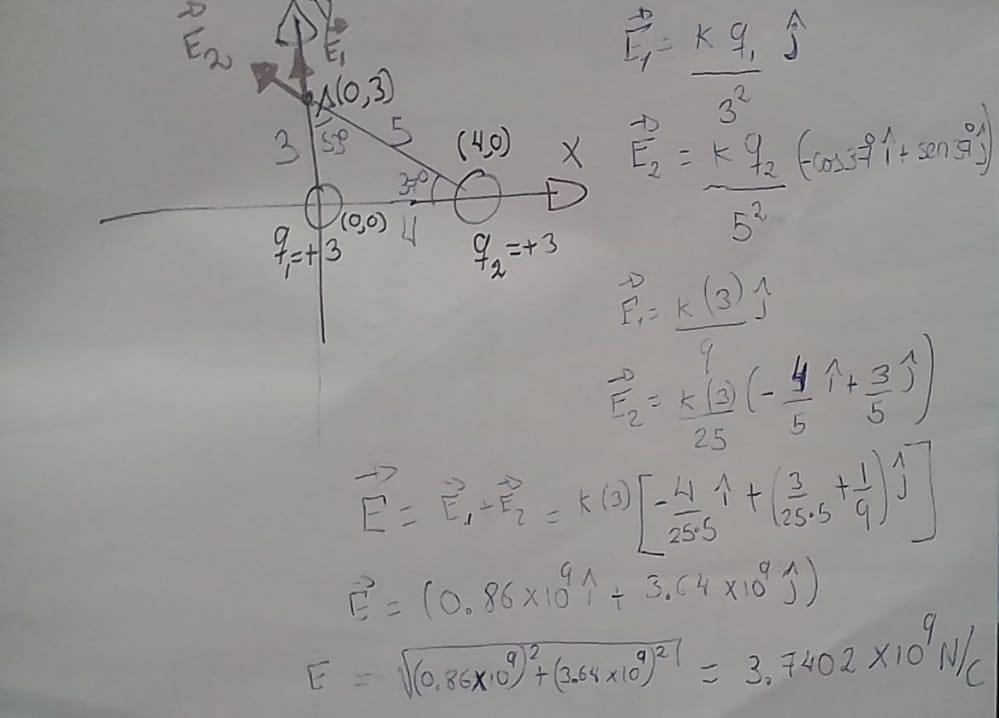 E₂ E₁
A(0,3)
3 53° 5
(4,0) X
37°
(0,0) 4
q₁=+3 q₂=+3
E⃗₁= K q₁ / 3² ĵ
E⃗₂ = K q₂ / 5² (-cos37° î + sen37° ĵ)
E⃗₁= K(3) / 9 ĵ
E⃗₂ = K(3) / 25 (- 4/5 î + 3/5 ĵ)
E⃗ = E⃗₁+E⃗₂ = K(3) [- 4/25·5 î + (3/25·5 + 1/9) ĵ]
E⃗ = (0.86×10⁹ î + 3.64×10⁹ ĵ)
E = √(0.86×10⁹)²+(3.64×10⁹)² = 3.7402×10⁹ N/C